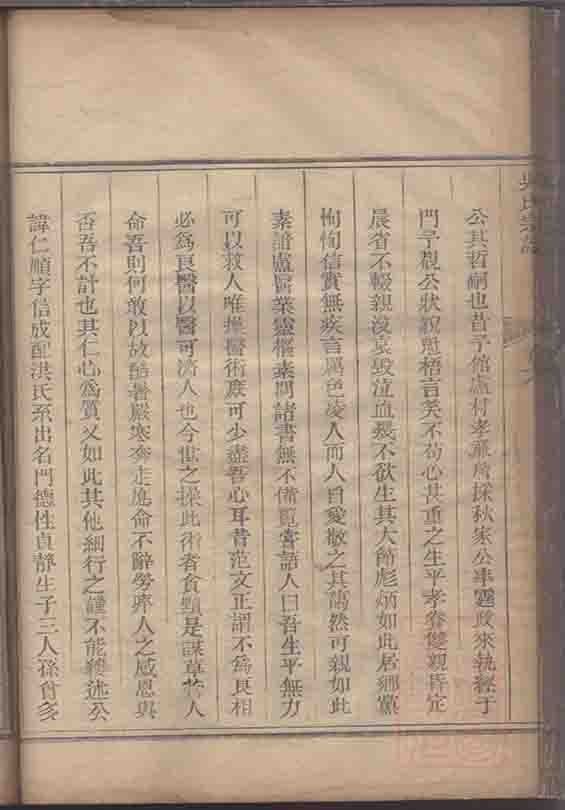 氏宗譜
公其哲嗣也昔予館盧村孝廉詹採秋家公率靈政來執經于
門予觀公狀貌魁梧言笑不苟心甚重之生平孝養雙親昏定
晨省不輟親沒哀毀泣血幾不欲生其大節彪炳如此居鄉黨
恂恂信實無疾言厲色凌人而人自愛敬之其藹然可親如此
素諳盧醫業靈樞素問諸書無不備覽嘗語人曰吾生平無力
可以救人唯操醫術庶可少盡吾心耳昔范文正謂不為良相
必為良醫以醫可濟人也今世之操此術者貪婪是謀草菅人
命吾則何敢以故酷暑嚴寒奔走應命不辭勞瘁人之感恩與
否吾不計也其仁心為質又如此其他細行之謹不能殫述公
諱仁順字信成配洪氏系出名門德性貞靜生子三人孫曾多